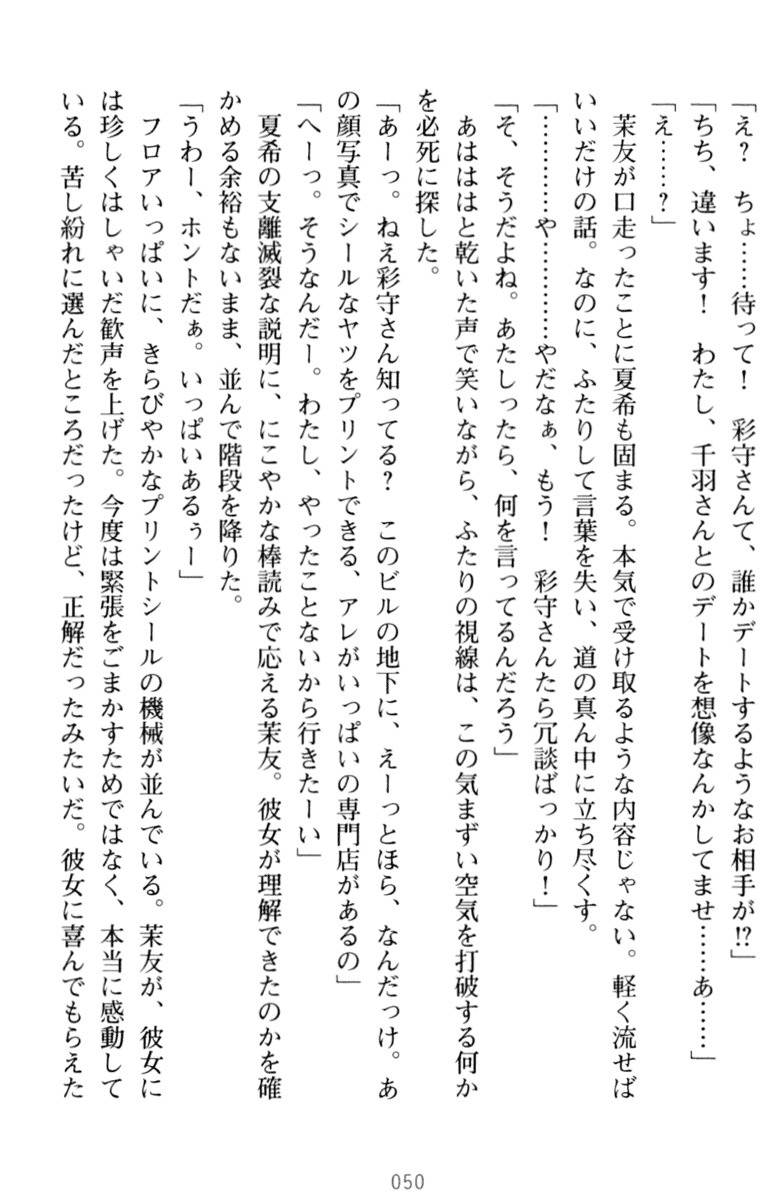 「え？　ちょ……待って！　彩守さんて、誰かデートするようなお相手が!?」
「ちち、違います！　わたし、千羽さんとのデートを想像なんかしてませ……あ……」
「え……？」
　茉友が口走ったことに夏希も固まる。本気で受け取るような内容じゃない。軽く流せば
いいだけの話。なのに、ふたりして言葉を失い、道の真ん中に立ち尽くす。
「…………や…………やだなぁ、もう！　彩守さんたら冗談ばっかり！」
「そ、そうだよね。あたしったら、何を言ってるんだろう」
　あはははと乾いた声で笑いながら、ふたりの視線は、この気まずい空気を打破する何か
を必死に探した。
「あーっ。ねえ彩守さん知ってる？　このビルの地下に、えーっとほら、なんだっけ。あ
の顔写真でシールなヤツをプリントできる、アレがいっぱいの専門店があるの」
「へーっ。そうなんだー。わたし、やったことないから行きたーい」
　夏希の支離滅裂な説明に、にこやかな棒読みで応える茉友。彼女が理解できたのかを確
かめる余裕もないまま、並んで階段を降りた。
「うわー、ホントだぁ。いっぱいあるぅー」
　フロアいっぱいに、きらびやかなプリントシールの機械が並んでいる。茉友が、彼女に
は珍しくはしゃいだ歓声を上げた。今度は緊張をごまかすためではなく、本当に感動して
いる。苦し紛れに選んだところだったけど、正解だったみたいだ。彼女に喜んでもらえた
050